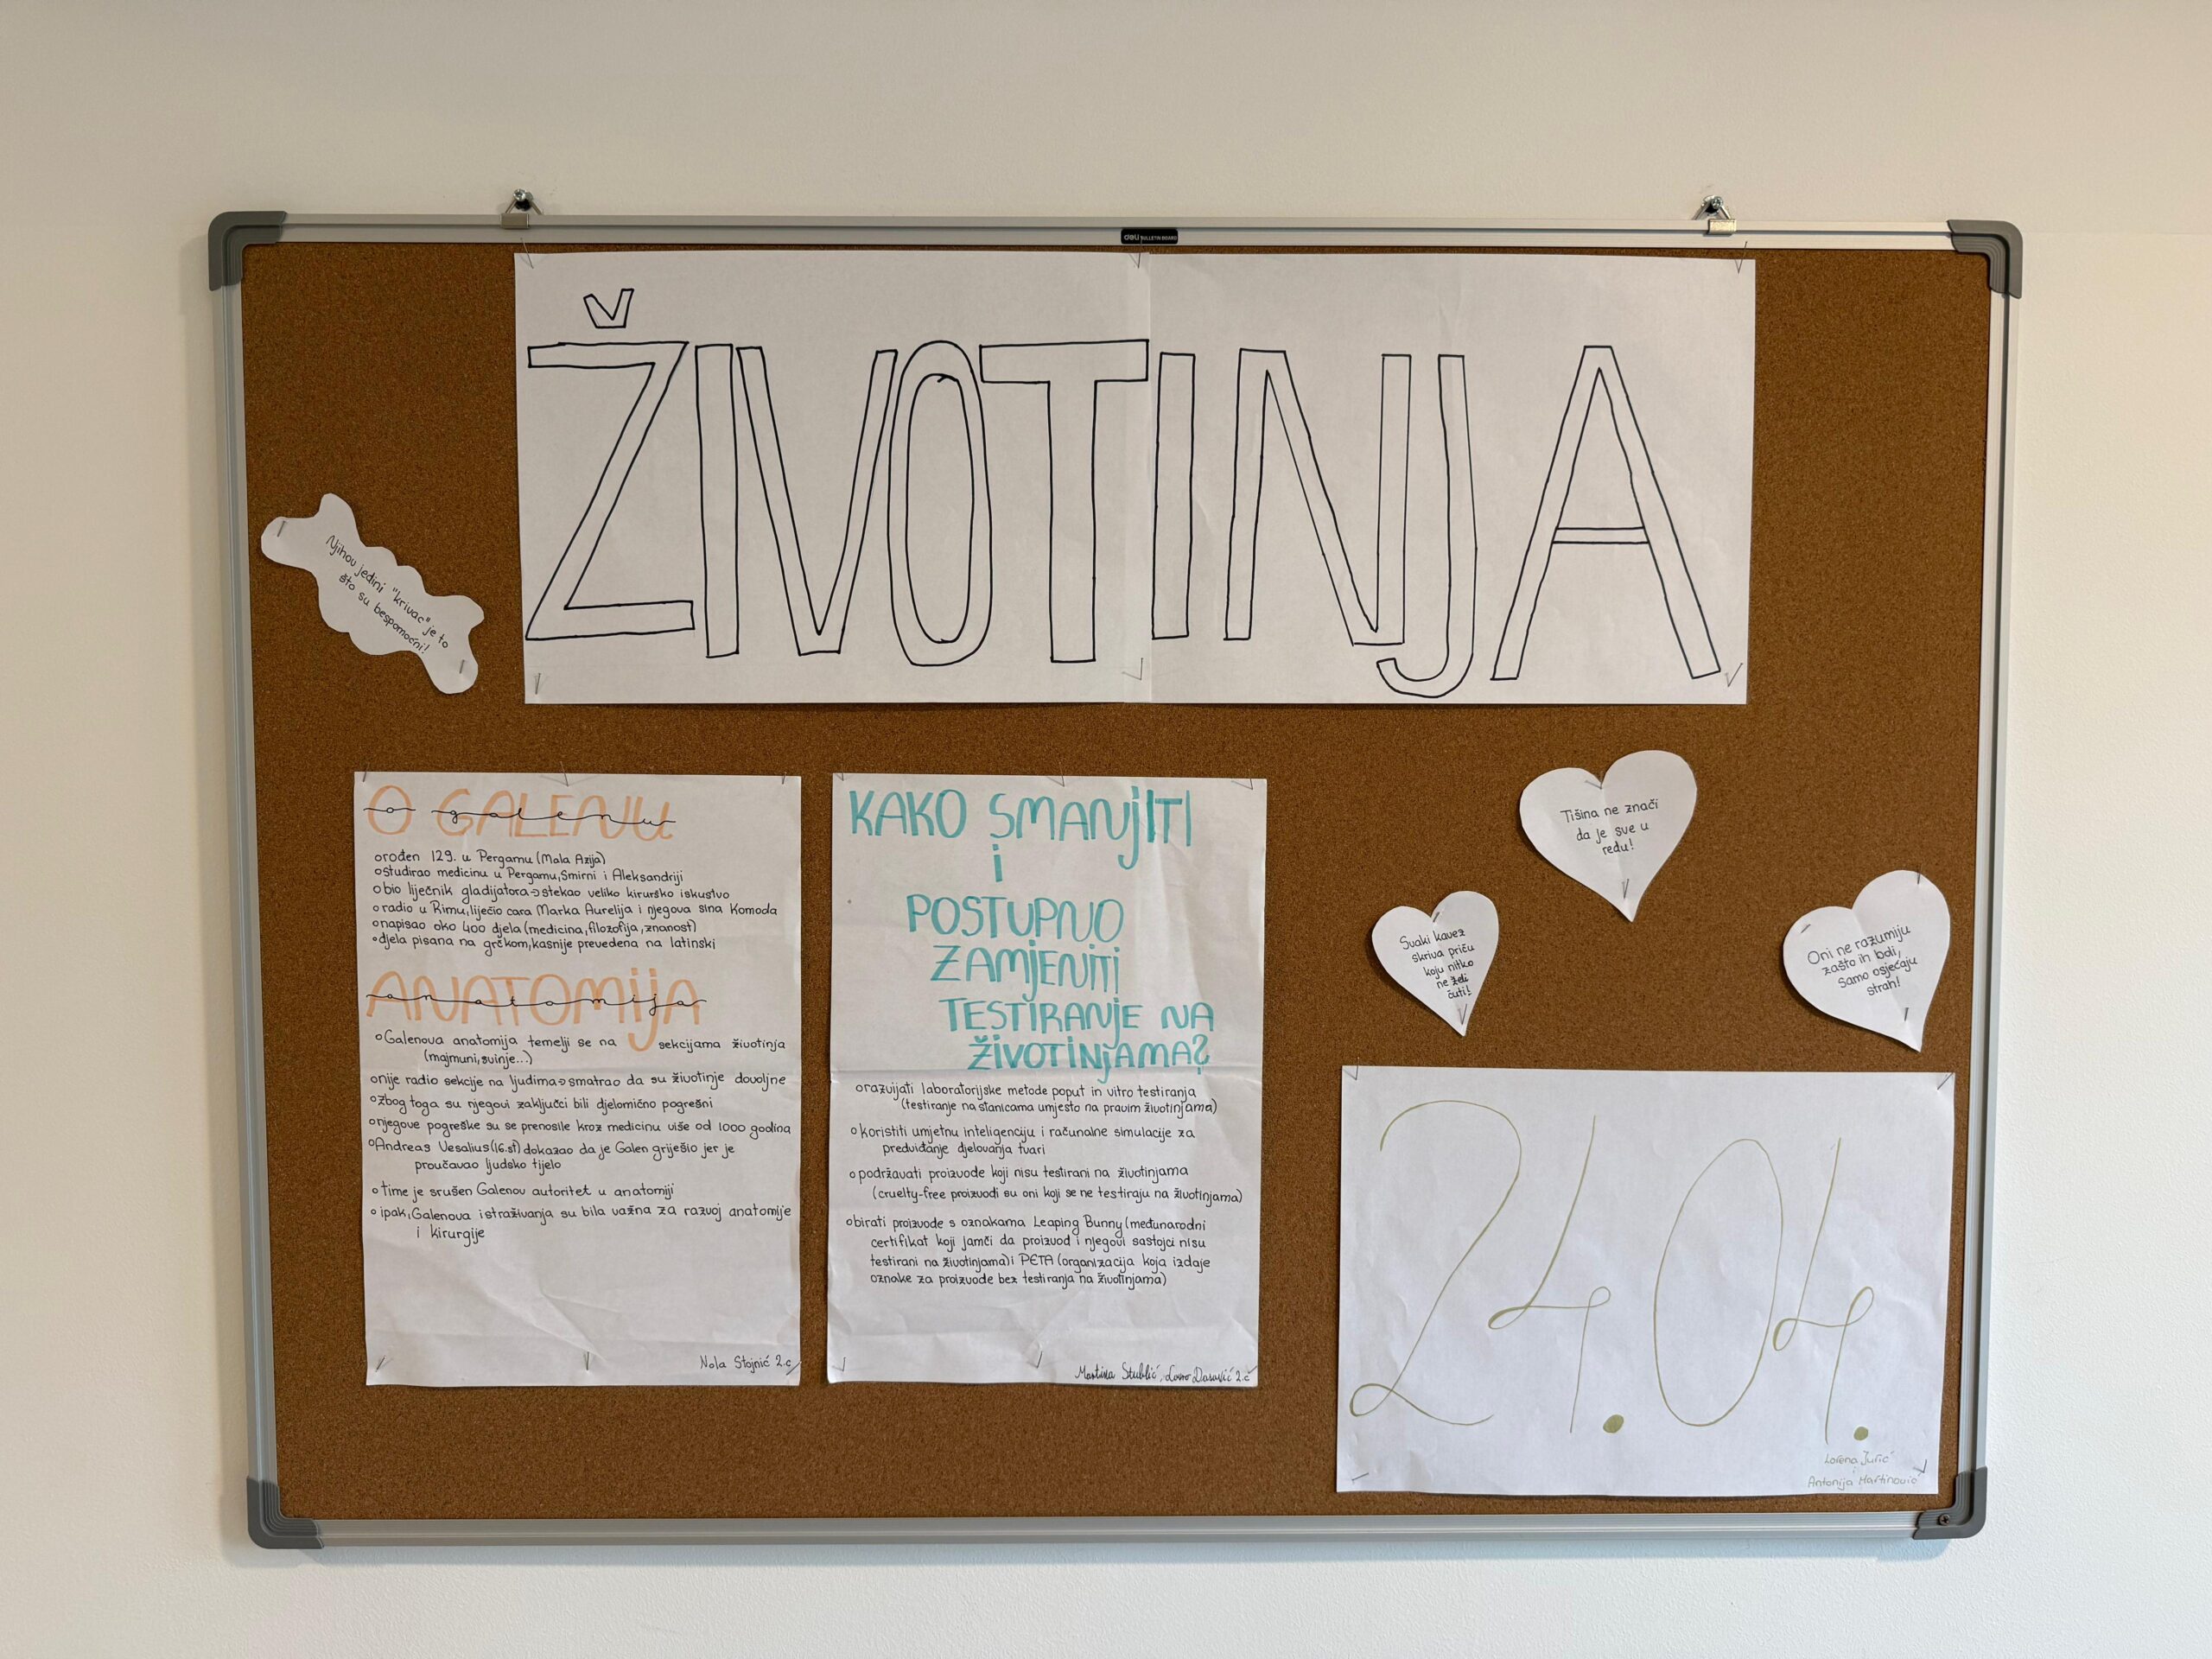 deli BULLETIN BOARD
ŽIVOTINJA
Njihov jedini "krivac" je to
što su bespomoćni!
O GALENU
o galenu
o rođen 129. u Pergamu (Mala Azija)
o studirao medicinu u Pergamu, Smirni i Aleksandriji
o bio liječnik gladijatora → stekao veliko kirurško iskustvo
o radio u Rimu, liječio cara Marka Aurelija i njegova sina Komoda
o napisao oko 400 djela (medicina, filozofija, znanost)
o djela pisana na grčkom, kasnije prevedena na latinski
ANATOMIJA
anatomija
o Galenova anatomija temelji se na sekcijama životinja
(majmuni, svinje...)
o nije radio sekcije na ljudima → smatrao da su životinje dovoljne
o zbog toga su njegovi zaključci bili djelomično pogrešni
o njegove pogreške su se prenosile kroz medicinu više od 1000 godina
o Andreas Vesalius (16.st) dokazao da je Galen griješio jer je
proučavao ljudsko tijelo
o time je srušen Galenov autoritet u anatomiji
o ipak, Galenova istraživanja su bila važna za razvoj anatomije
i kirurgije
Nola Stojnić 2.c
KAKO SMANJITI
i
POSTUPNO
ZAMJENITI
TESTIRANJE NA
ŽIVOTINJAMA?
o razvijati laboratorijske metode poput in vitro testiranja
(testiranje na stanicama umjesto na pravim životinjama)
o koristiti umjetnu inteligenciju i računalne simulacije za
predviđanje djelovanja tvari
o podržavati proizvode koji nisu testirani na životinjama
(cruelty-free proizvodi su oni koji se ne testiraju na životinjama)
o birati proizvode s oznakama Leaping Bunny (međunarodni
certifikat koji jamči da proizvod i njegovi sastojci nisu
testirani na životinjama) i PETA (organizacija koja izdaje
oznake za proizvode bez testiranja na životinjama)
Martina Stublić, Lovro 2.c
Tišina ne znači
da je sve u
redu!
Svaki kavez
skriva priču
koju nitko
ne želi
čuti!
Oni ne razumiju
zašto ih boli,
samo osjećaju
strah!
24.04.
Lorena Jurić
i
Antonija Martinović